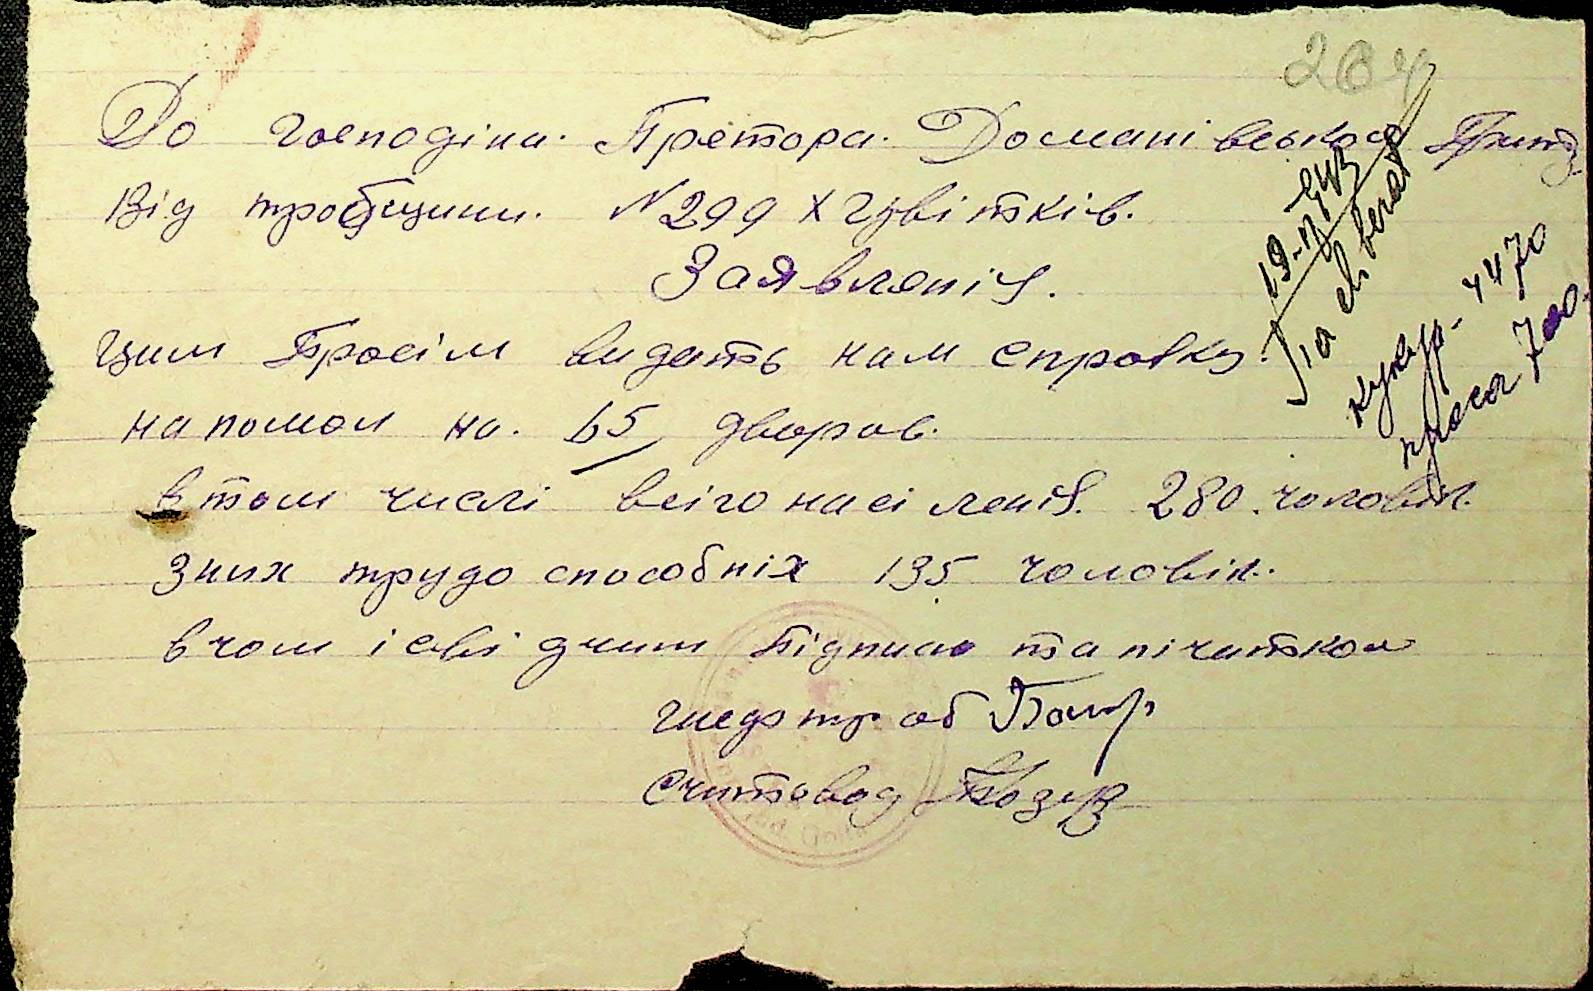 204
До господіна. Претора. Доманівського
Від трообщини. N 299 х Гвітків.
Заявленія.
Цим Просім видать нам справку.
на помол на. 65 дворов.
в том числі всіго насіленія. 280. чоловік.
Зних трудо способніх 135 чоловік.
вчом і свідчим підписю та пічиткою
считовод
кукур - 4470
проса 700.